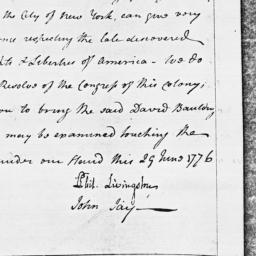 the City of New York, can give very
respecting the late discovered
& Liberties of America - We do
Resolve of the Congress of this Colony,
you to bring the said David
may be examined touching the
under our Hand this 29 June 1776
Phil. Livingston
John Jay